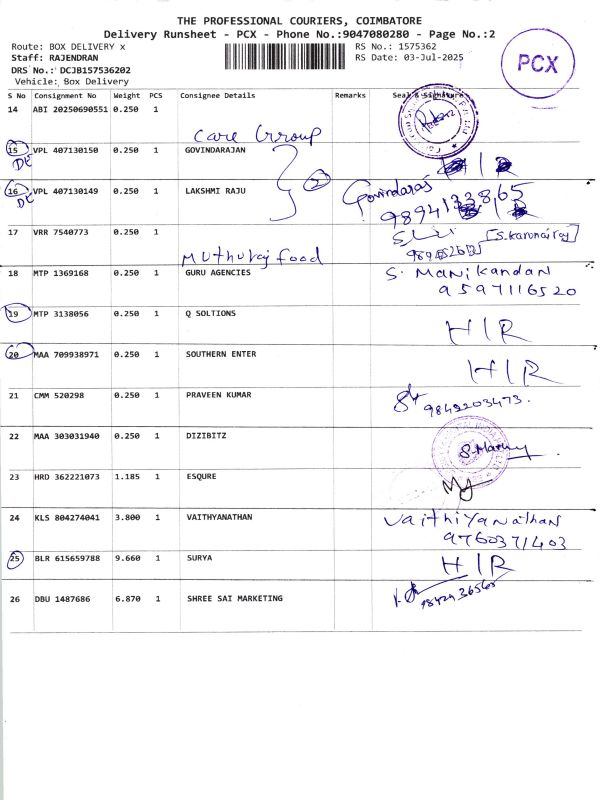 THE PROFESSIONAL COURIERS, COIMBATORE
Delivery Runsheet - PCX - Phone No.:9047080280 - Page No.:2
Route: BOX DELIVERY x
Staff: RAJENDRAN
DRS No.: DCJB157536202
Vehicle: Box Delivery
RS No.: 1575362
RS Date: 03-Jul-2025
PCX
S No Consignment No Weight PCS Consignee Details Remarks Seal & Signature
14 ABI 20250690551 0.250 1
Care Group
15 VPL 407130150 0.250 1 GOVINDARAJAN
DE
16 VPL 407130149 0.250 1 LAKSHMI RAJU
DE
2
Govindaraj
17 VRR 7540773 0.250 1
[S.Karunairaj]
Muthuraj food
18 MTP 1369168 0.250 1 GURU AGENCIES S. Manikandan
9597116520
19 MTP 3138056 0.250 1 Q SOLTIONS
H/R
20 MAA 709938971 0.250 1 SOUTHERN ENTER
H/R
21 CMM 520298 0.250 1 PRAVEEN KUMAR
9842203473.
22 MAA 303031940 0.250 1 DIZIBITZ
23 HRD 362221073 1.185 1 ESQURE
24 KLS 804274041 3.800 1 VAITHYANATHAN Vaithiyanathan
9760371403
25 BLR 615659788 9.660 1 SURYA H/R
26 DBU 1487686 6.870 1 SHREE SAI MARKETING